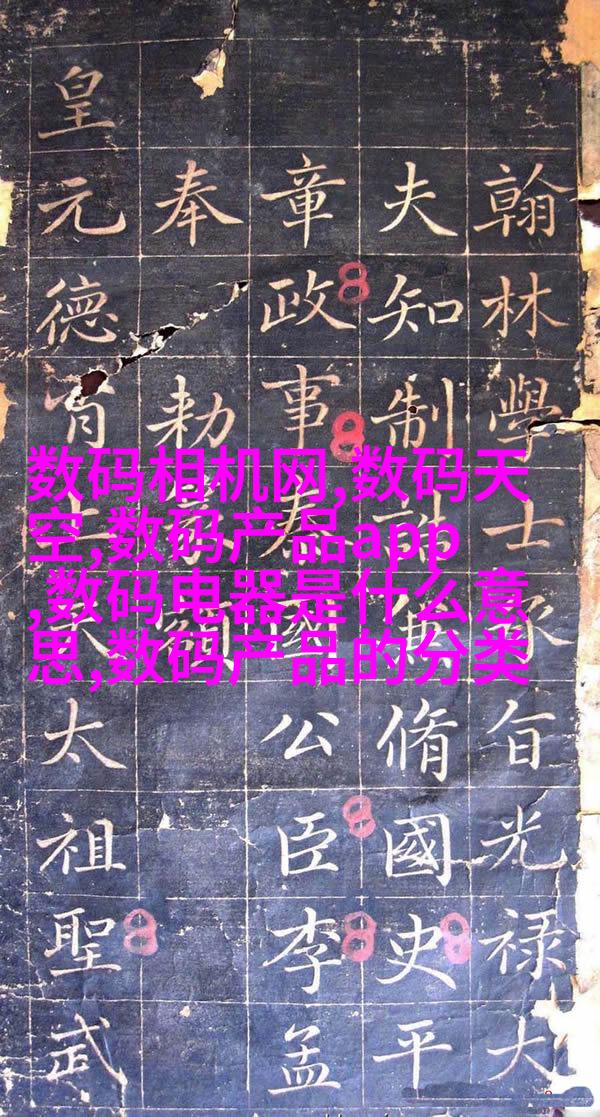 数码相机网,数码天
空,数码产品app
,数码电器是什么意
思,数码产品的分类
翰林學士承旨光禄大
夫知制誥兼脩國史平
章政事秦國公臣李孟
奉勑
皇元德太祖聖武